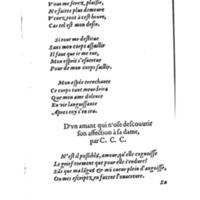 Vous me ferez, plaisir,
Ne faites plus demeure
Venez, tost à ceste heure,
Car tel est mon desir.
Si tout me
Sans mon corps assaillir
Il faut que ie me tuë,
Mon esprit s'esuertue
Pour de mon corps saillir.
Mon espée trenchante
Ce corps tant meurdrira
Que mon ame dolente
En vie languissante
Apres s'en ira.
D'vn amant qui n'ose descouurir
son affection à sa dame,
par C. C. C.
N'est il possible, amour, qu'elle cognoisse
Le grief tourment que pour elle i'endure?
Où mes escripts, en facent l'ouuerture.
La